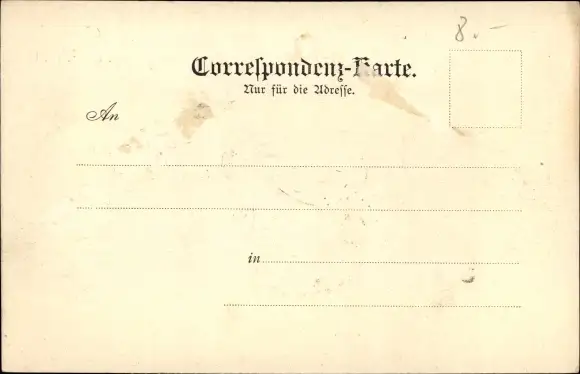 8.-
Correspondenz-Karte.
Nur für die Adresse.
An
in